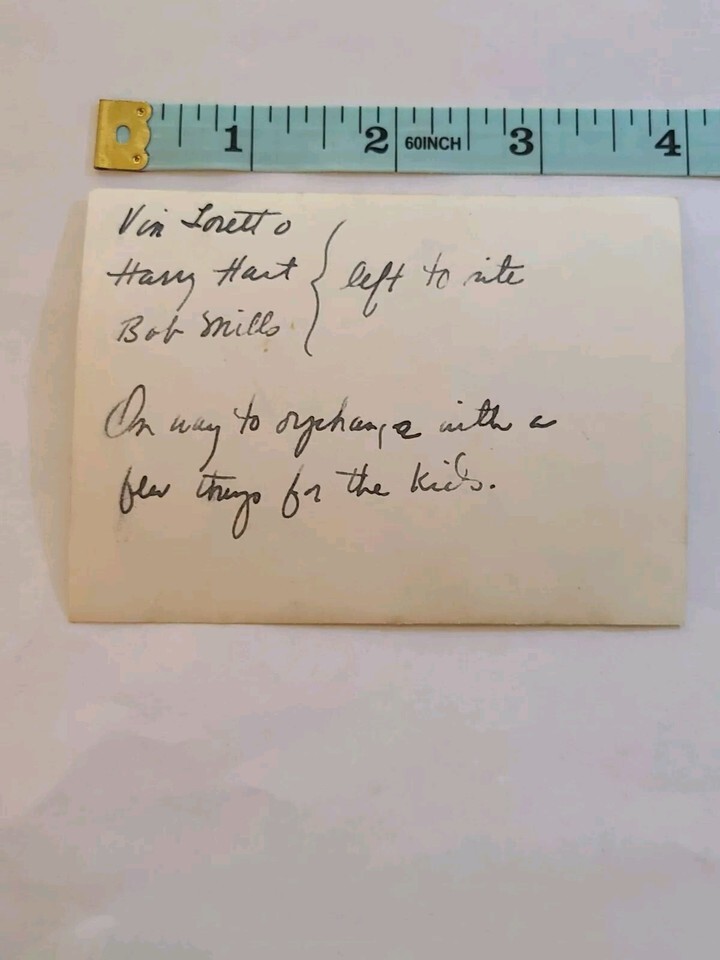 1 2 60INCH 3 4
Vin Loretto
Harry Hart } left to rite
Bob Mills
On way to orphange with a
few things for the kids.